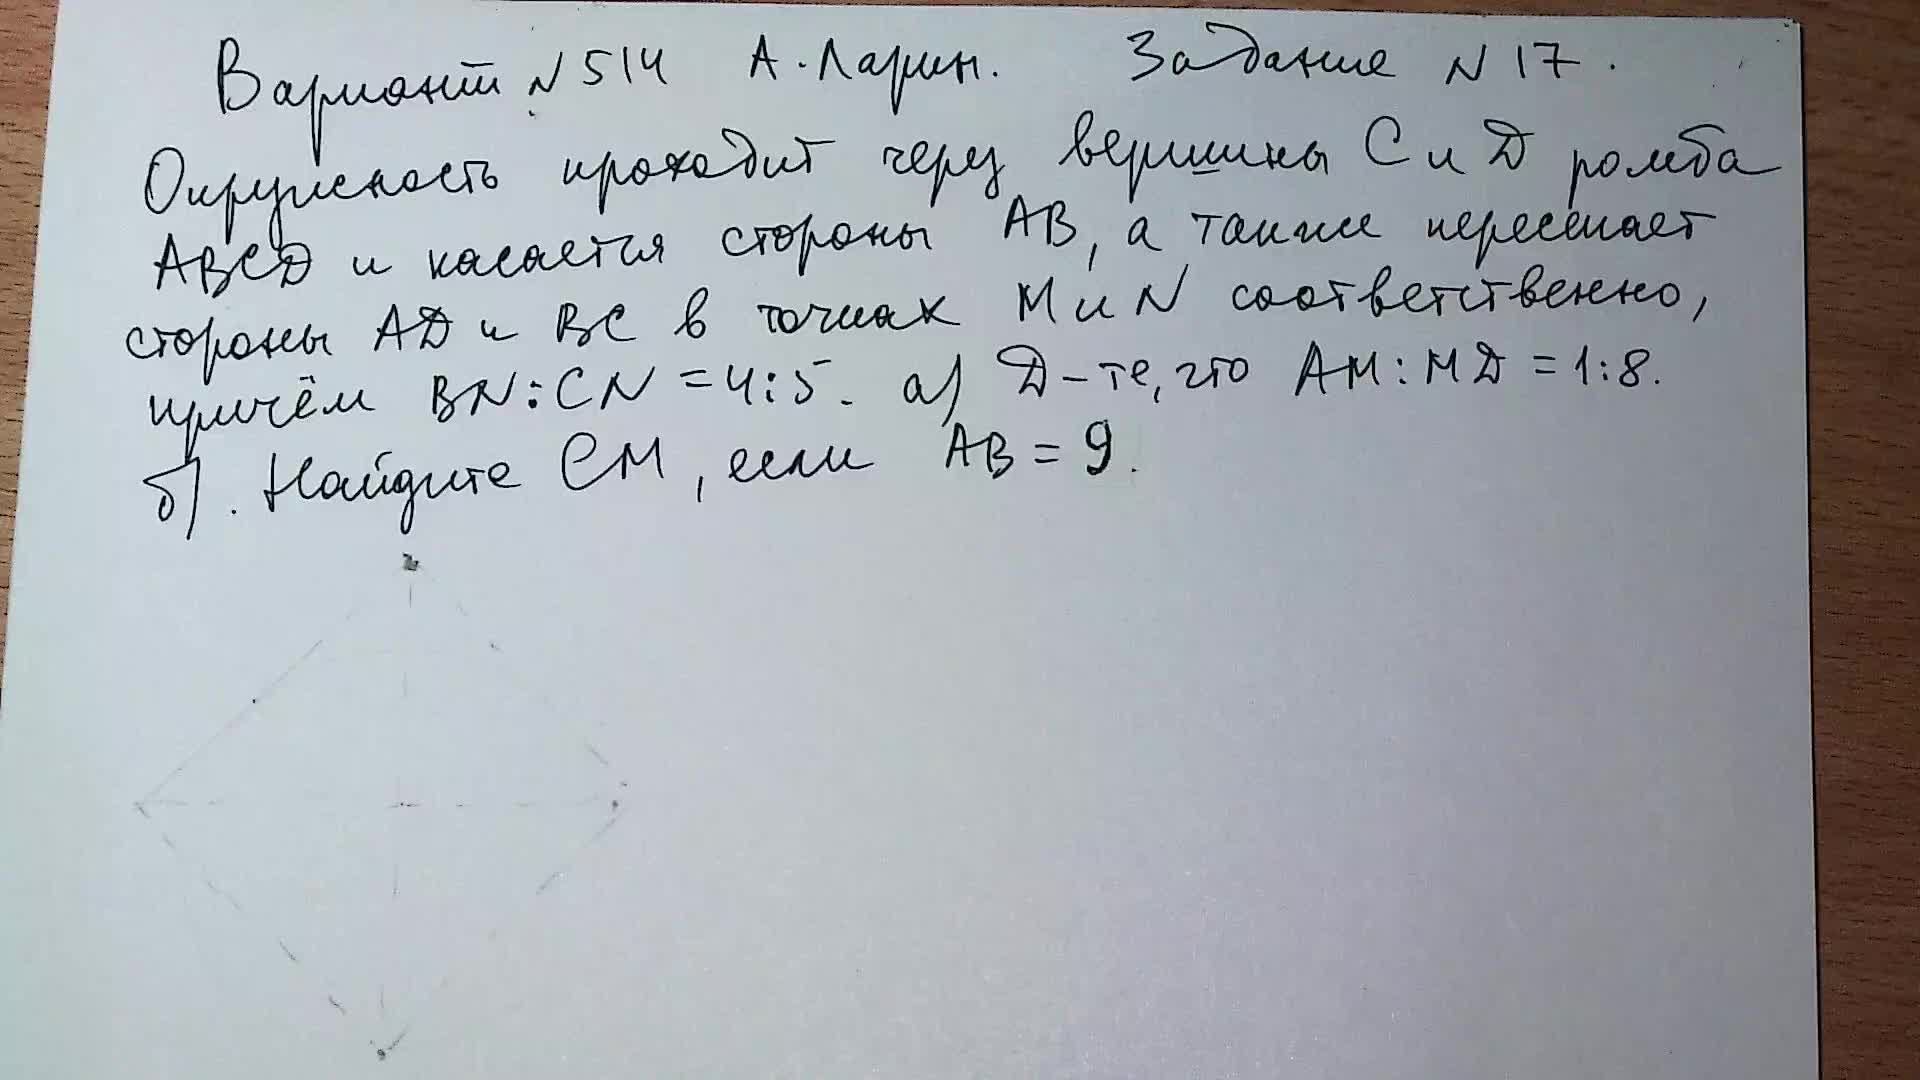 Вариант N 514 А. Ларин. Задание N 17.
Окружность проходит через вершины С и D ромба
ABCD и касается стороны AB, а также пересекает
стороны AD и BC в точках M и N соответственно,
причём BN:CN = 4:5. а) Д-те, что AM:MD = 1:8.
б). Найдите CM, если AB = 9.